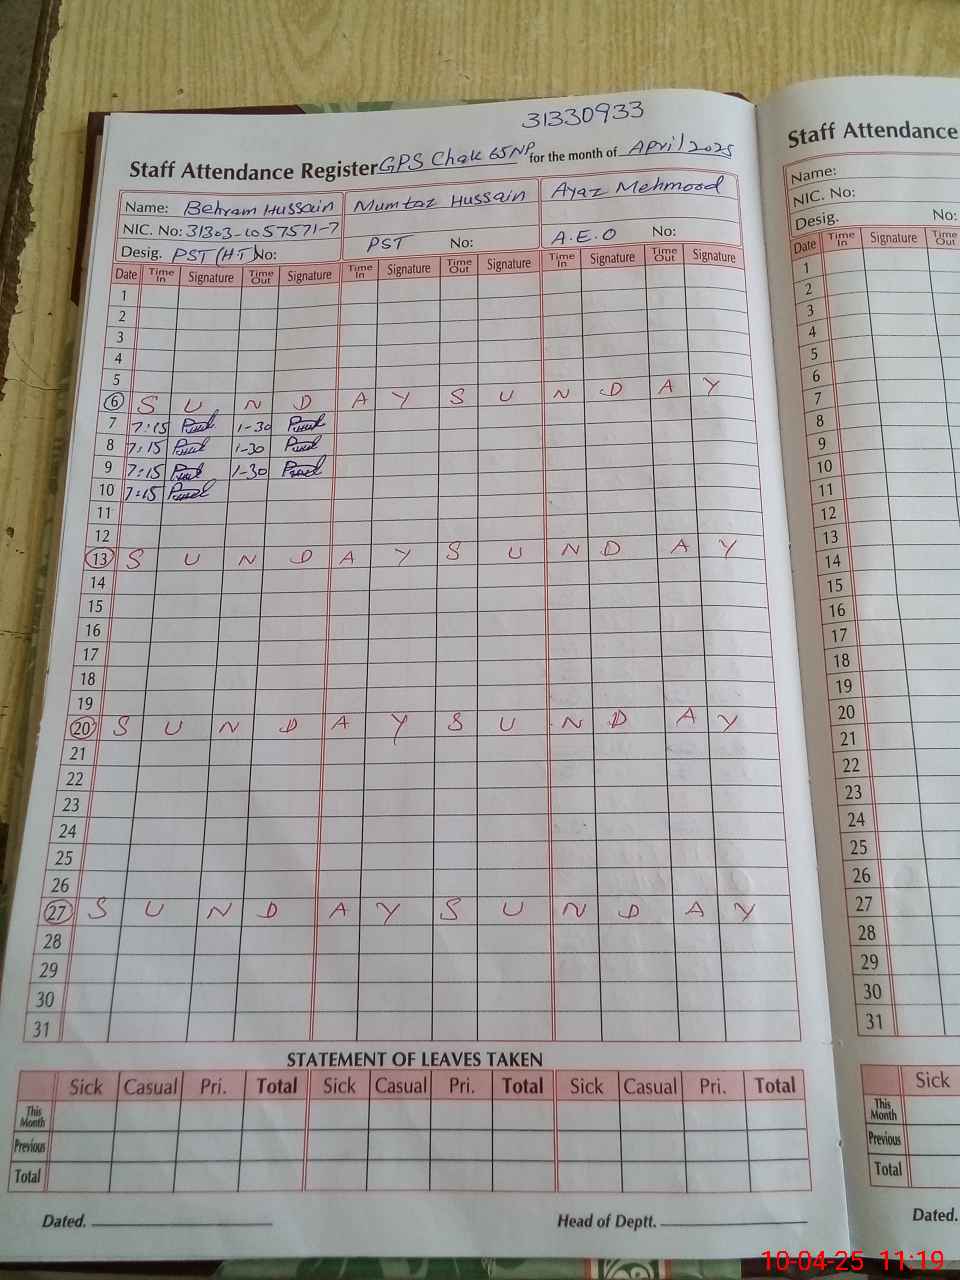 31330933
Staff Attendance Register GPS Chak 65NP for the month of April 2025
Name: Behram Hussain Mumtaz Hussain Ayaz Mehmood
NIC. No: 31303-1057571-7
Desig. PST (HT) No: PST No: A.E.O No:
Date Time In Signature Time Out Signature Time In Signature Time Out Signature Time In Signature Time Out Signature
1
2
3
4
5
6 S U N D A Y S U N D A Y
7 7:15 1-30
8 7:15 1-30
9 7:15 1-30
10 7:15
11
12
13 S U N D A Y S U N D A Y
14
15
16
17
18
19
20 S U N D A Y S U N D A Y
21
22
23
24
25
26
27 S U N D A Y S U N D A Y
28
29
30
31
STATEMENT OF LEAVES TAKEN
Sick Casual Pri. Total Sick Casual Pri. Total Sick Casual Pri. Total
This Month
Previous
Total
Dated. Head of Deptt.
Staff Attendance
Name:
NIC. No:
Desig. No:
Date Time In Signature Time Out
1
2
3
4
5
6
7
8
9
10
11
12
13
14
15
16
17
18
19
20
21
22
23
24
25
26
27
28
29
30
31
Sick
This Month
Previous
Total
Dated.
10-04-25 11:19